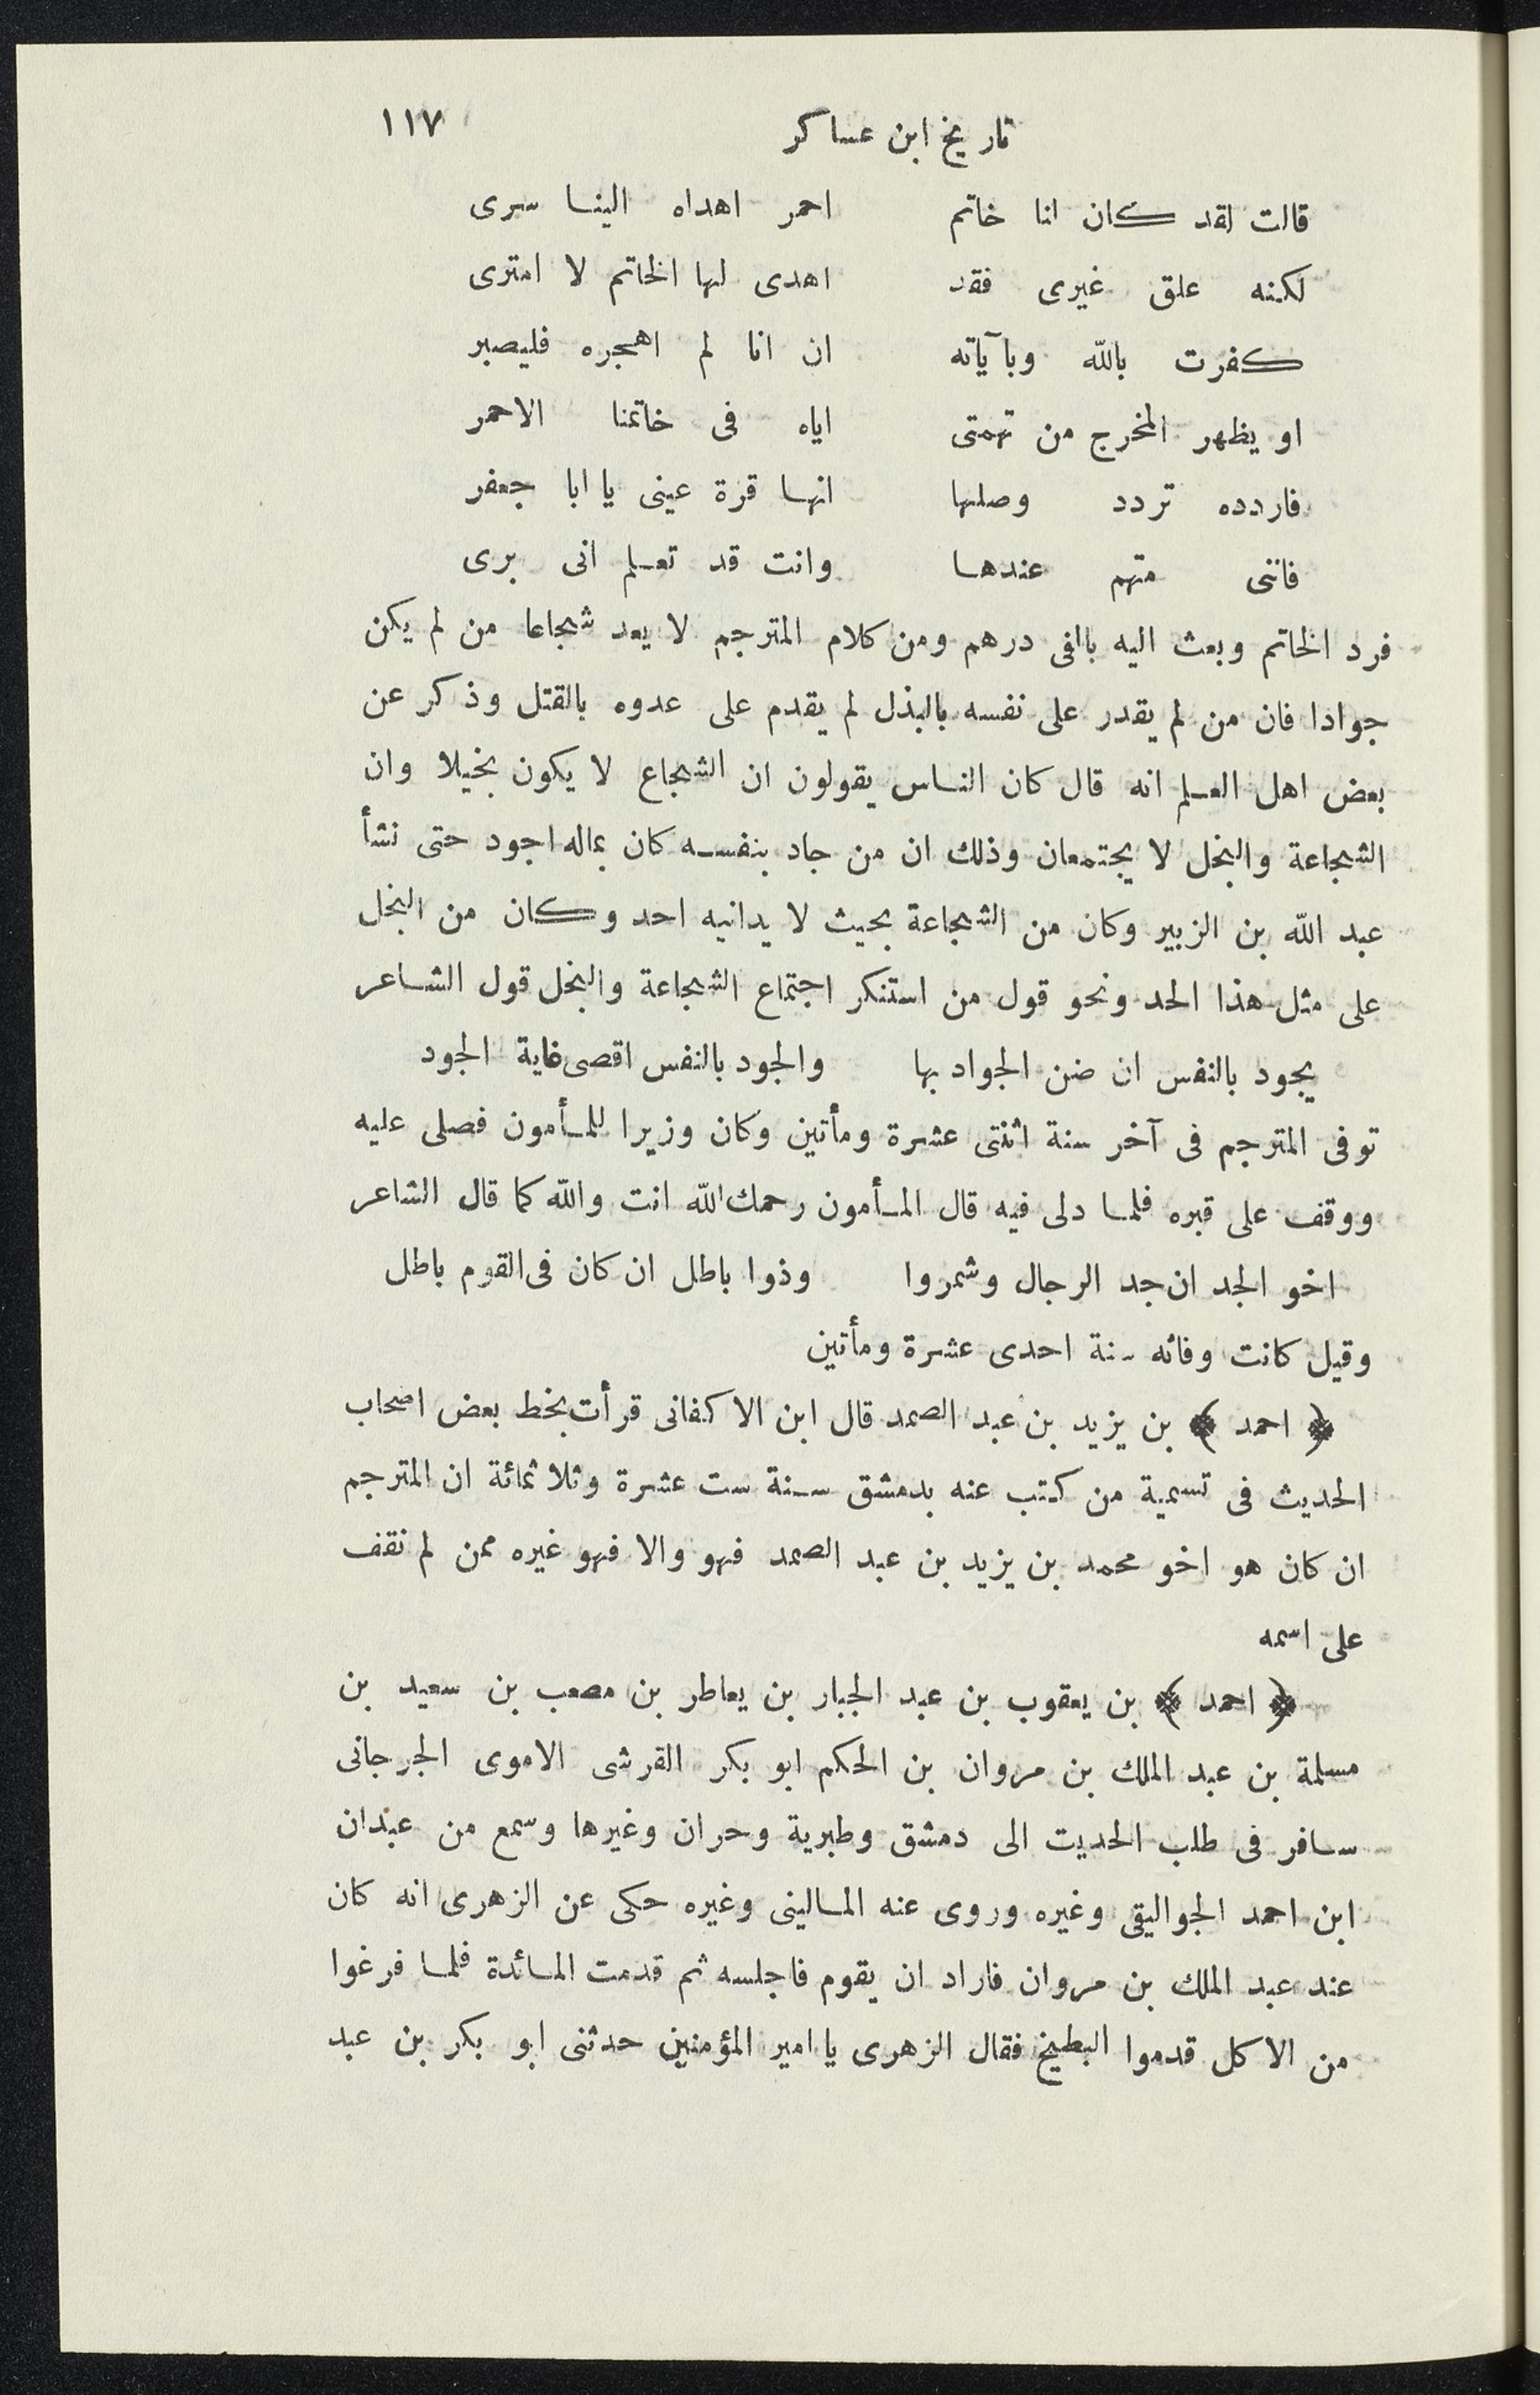 تاريخ ابن عساكر ١١٧
قالت لقد كان لنا خاتم احمر اهداه الينا سرى
لكنه علق غيرى فقد اهدى لها الخاتم لا امترى
كفرت بالله وبآياته ان انا لم اهجره فليصبر
او يظهر المخرج من تهمتى اياه فى خاتمنا الاحمر
فاردده تردد وصلها انها قرة عينى يا ابا جعفر
فاننى متهم عندها وانت قد تعلم انى برى
فرد الخاتم وبعث اليه بالفى درهم ومن كلام المترجم لا يعد شجاعا من لم يكن
جوادا فان من لم يقدر على نفسه بالبذل لم يقدم على عدوه بالقتل وذكر عن
بعض اهل العلم انه قال كان الناس يقولون ان الشجاع لا يكون بخيلا وان
الشجاعة والبخل لا يجتمعان وذلك ان من جاد بنفسه كان بماله اجود حتى نشأ
عبد الله بن الزبير وكان من الشجاعة بحيث لا يدانيه احد وكان من البخل
على مثل هذا الحد ونحو قول من استنكر اجتماع الشجاعة والبخل قول الشاعر
يجود بالنفس ان ضن الجواد بها والجود بالنفس اقصى غاية الجود
توفى المترجم فى آخر سنة اثنتى عشرة ومأتين وكان وزيرا للمأمون فصلى عليه
ووقف على قبره فلما دلى فيه قال المأمون رحمك الله انت والله كما قال الشاعر
اخو الجد ان جد الرجال وشمروا وذوا باطل ان كان فى القوم باطل
وقيل كانت وفاته سنة احدى عشرة ومأتين
﴿ احمد ﴾ بن يزيد بن عبد الصمد قال ابن الاكفانى قرأت بخط بعض اصحاب
الحديث فى تسمية من كتب عنه بدمشق سنة ست عشرة وثلاثمائة ان المترجم
ان كان هو اخو محمد بن يزيد بن عبد الصمد فهو والا فهو غيره ممن لم نقف
على اسمه
﴿ احمد ﴾ بن يعقوب بن عبد الجبار بن يعاطر بن مصعب بن سعيد بن
مسلمة بن عبد الملك بن مروان بن الحكم ابو بكر القرشى الاموى الجرجانى
سافر فى طلب الحديت الى دمشق وطبرية وحران وغيرها وسمع من عبدان
ابن احمد الجواليقى وغيره وروى عنه المالينى وغيره حكى عن الزهرى انه كان
عند عبد الملك بن مروان فاراد ان يقوم فاجلسه ثم قدمت المائدة فلما فرغوا
من الاكل قدموا البطيخ فقال الزهرى يا امير المؤمنين حدثنى ابو بكر بن عبد